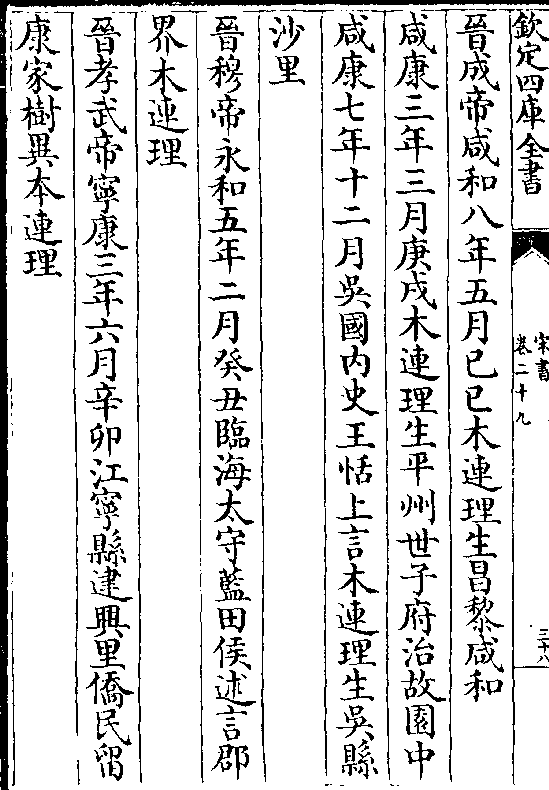 欽定四庫全書
宋書
卷二十九
三十八
晉成帝咸和八年五月己巳木連理生昌黎咸和
咸康三年三月庚戌木連理生平州世子府治故園中
咸康七年十二月吳國內史王恬上言木連理生吳縣
沙里
晉穆帝永和五年二月癸丑臨海太守藍田侯述言郡
界木連理
晉孝武帝寧康三年六月辛卯江寧縣建興里僑民留
康家樹異本連理